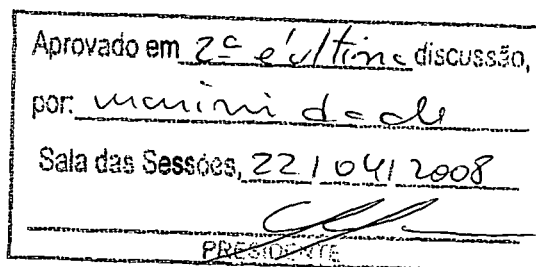 Aprovado em 2ª e última discussão,
por: unanimidade
Sala das Sessões, 22/04/2008
PRESIDENTE